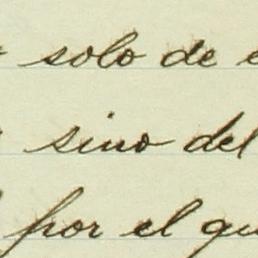 solo de
sino del
por el qu